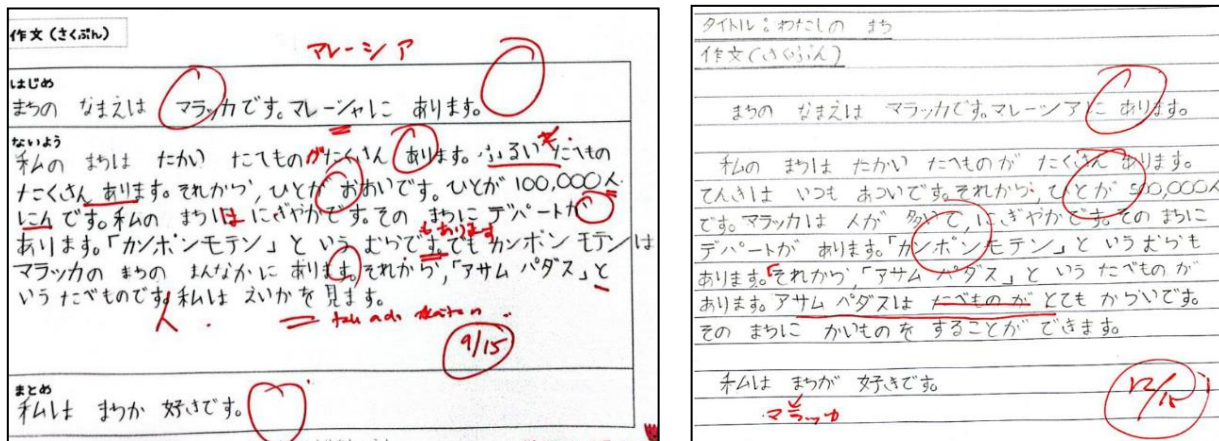 作文(さくぶん)
マレーシア
はじめ
まちの なまえは マラッカです。マレーシャに あります。
ないよう
私の まちは たかい たてもの がたくさん あります。ふるい たてもの
たくさん あります。それから, ひとが おおいです。ひとが 100,000人
にん です。私の まちは は にぎやかです。その まちに デパートが
もあります
あります。「カンポンモテン」と いう むらです。でも カンポン モテンは
マラッカの まちの まんなかに あります。それから,「アサム パダス」と
いう たべものです。私は えいがを 見ます。
9/15
まとめ
私は まちが 好きです。
タイトル:わたしの まち
作文(さくぶん)
まちの なまえは マラッカです。マレーシアに あります。
私の まちは たかい たてものが たくさん あります。
てんきは いつも あついです。それから, ひとが 500,000人
です。マラッカは 人が 多いて, にぎやかです。その まちに
デパートが あります。「カンポンモテン」と いう むらも
あります。それから,「アサム パダス」と いう たべもの が
あります。アサム パダスは たべものが とても からいです。
その まちに かいものを することが できます。
私は まちが 好きです。
マラッカ
12/15